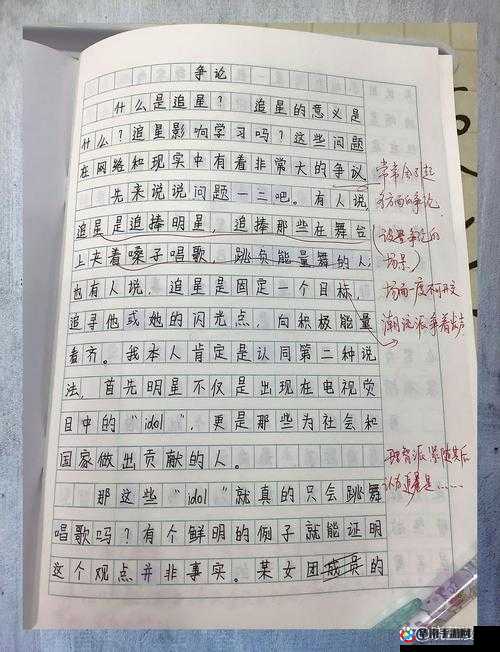 争论
什么是追星？追星的意义是
什么？追星影响学习吗？这些问题
在网络和现实中有着非常大的争议
先来说说问题一二吧。有人说，
追星是追捧明星，追捧那些在舞台
上夹着嗓子唱歌，跳负能量舞的人；
也有人说，追星是固定一个目标，
追寻他或她的闪光点，向积极能量
看齐。我本人肯定是认同第二种说
法，首先明星不仅是出现在电视荧
目中的“idol”，更是那些为社会和
国家做出贡献的人。
那这些“idol”就真的只会跳舞
唱歌吗？有个鲜明的例子就能证明
这个观点并非事实。某女团成员的
常常会引起
多方面的争论
（设置争论的
场景）
场面一度不可开交
潮流派争着发声
理智派紧随其后
认为更是……